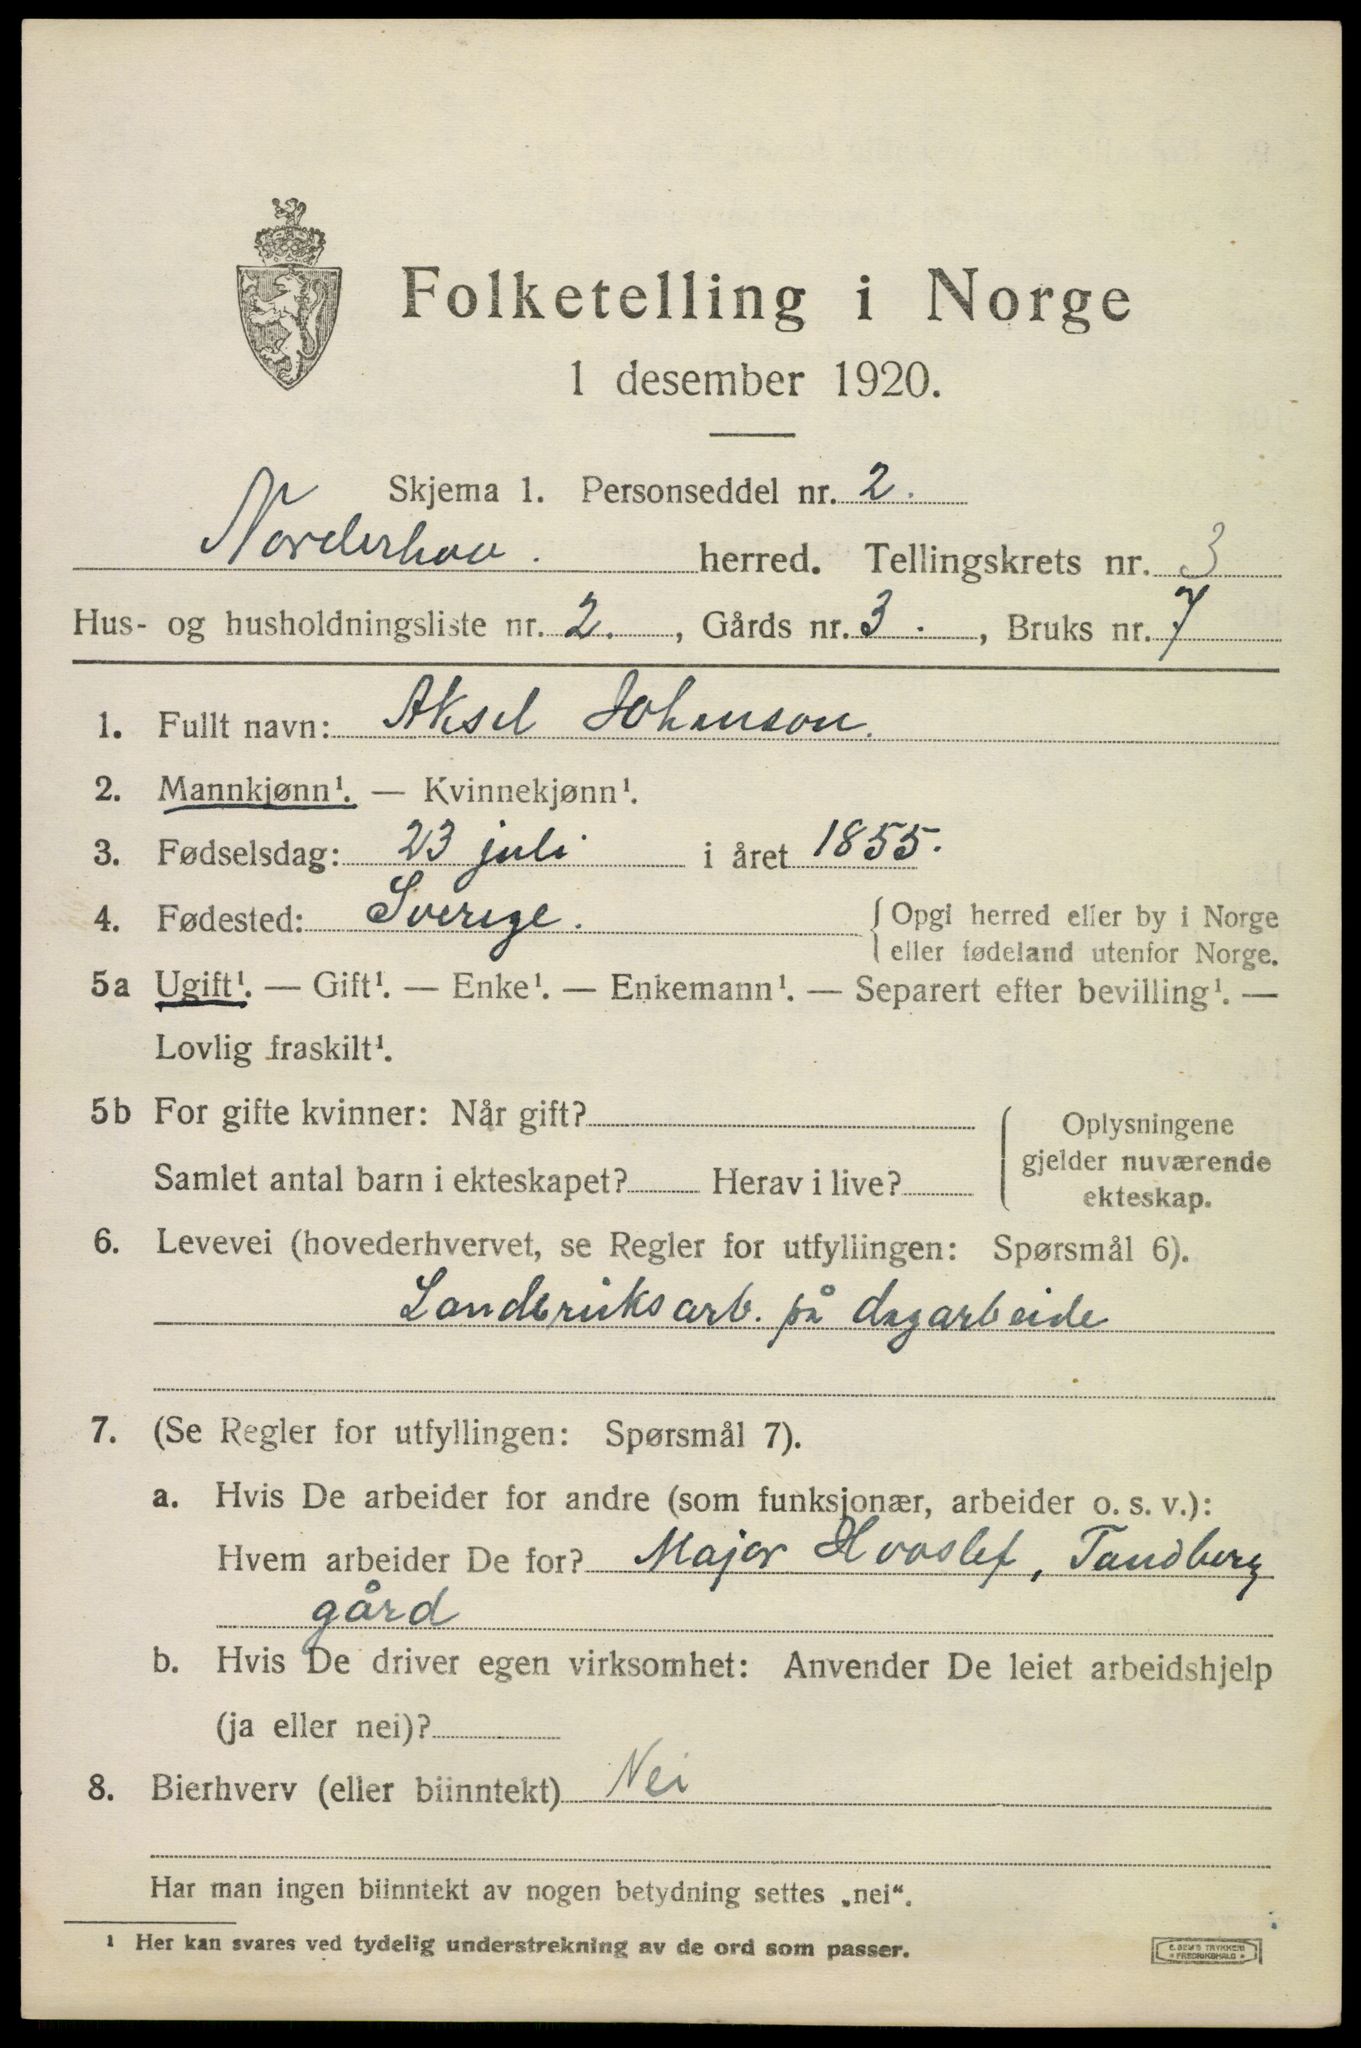 Folketelling i Norge
1 desember 1920.
Skjema 1. Personseddel nr. 2.
Norderhov. herred. Tellingskrets nr. 3
Hus- og husholdningsliste nr. 2. , Gårds nr. 3. , Bruks nr. 7
1. Fullt navn: Aksel Johanson.
2. Mannkjønn¹. — Kvinnekjønn¹.
3. Fødselsdag: 23 juli i året 1855.
4. Fødested: Sverige. Opgi herred eller by i Norge
eller fødeland utenfor Norge.
5a Ugift¹. — Gift¹. — Enke¹. — Enkemann¹. — Separert efter bevilling¹. —
Lovlig fraskilt¹.
5b For gifte kvinner: Når gift?
Samlet antal barn i ekteskapet? Herav i live?
Oplysningene
gjelder nuværende
ekteskap.
6. Levevei (hovederhvervet, se Regler for utfyllingen: Spørsmål 6).
Landbruksarb. på dagarbeide
7. (Se Regler for utfyllingen: Spørsmål 7).
a. Hvis De arbeider for andre (som funksjonær, arbeider o. s. v.):
Hvem arbeider De for? Major Hvoslef, Tandberg
gård
b. Hvis De driver egen virksomhet: Anvender De leiet arbeidshjelp
(ja eller nei)?
8. Bierhverv (eller biinntekt) Nei
Har man ingen biinntekt av nogen betydning settes „nei“.
¹ Her kan svares ved tydelig understrekning av de ord som passer.
E. SEM'S TRYKKERI
FREDRIKSHALD